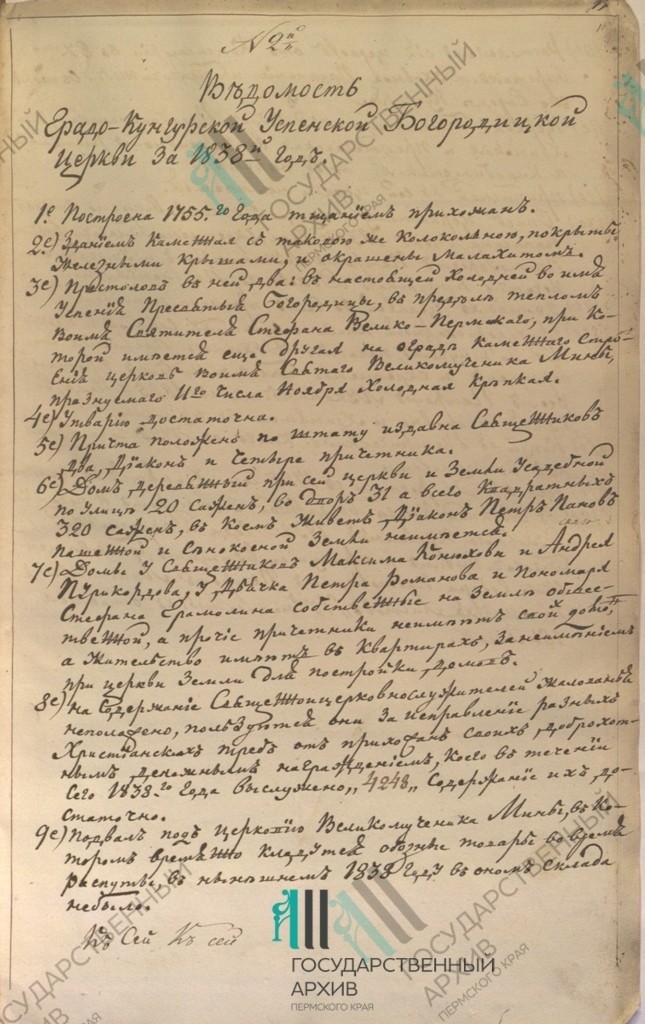 № 2й
Вѣдомость
Градо-Кунгурской Успенской Богородицкой
Церкви за 1838й годъ.
1е Построена 1755.го Года тщаніемъ прихожанъ.
2е) Зданіемъ Каменная съ таковою же колокольнею, покрыты
Железными Крышами, и окрашены Малахитомъ.
3е) Престоловъ въ ней два: въ настоящей холодней во имя
Успенія Пресвятыя Богородицы, въ предѣлѣ тепломъ
воимя Святителя Стефана Велико-Пермскаго, при Ко-
торой имѣется еще другая на оградѣ каменнаго строе-
нія церковь воимя Святаго Великомученика Мины,
празнуемаго 11го Числа Ноября Холодная Крѣпкая.
4е) Утварію достаточна.
5е) Причта положено по штату издавна Священниковъ
два, Діаконъ и Четыре причетника.
6е) Домъ деревянный при сей церкви и Земли Усадебной
по улицѣ 20 саженъ, во дворъ 31 а всего Квадратныхъ
320 саженъ, въ Коемъ живетъ Діаконъ Петръ Пановъ
пашенной и сѣнокосной Земли неимѣется.
7е) Домы у Священниковъ Максима Конюхова и Андрея
Пурикордова, у Дьячка Петра Романова и Пономаря
Стефана Ермолина собственные на Землѣ общес-
твенной, а прочіе причетники неимѣютъ свой домъ,
а жительство имѣютъ въ Квартирахъ, занеимѣніемъ
при церкви Земли для постройки домовъ.
8е) на Содержаніе Священноцерковнослужителей Жалованья
неположено, пользуются они За исправленіе разныхъ
Христіанскихъ требъ отъ прихожанъ своихъ доброхот-
нымъ денежнымъ награжденіемъ, Коего въ теченіи
сего 1838.го Года выслужено „4248„ Содержаніе ихъ до-
статочно.
9е) Подвалъ подъ Церковію Великомученика Мины, въ ко-
торомъ временно кладутся обозные товары вовремя
распутья, въ нынѣшнемъ 1838 году въ ономъ склада
небыло.
Къ Сей Къ сей
ГОСУДАРСТВЕННЫЙ
АРХИВ
ПЕРМСКОГО КРАЯ